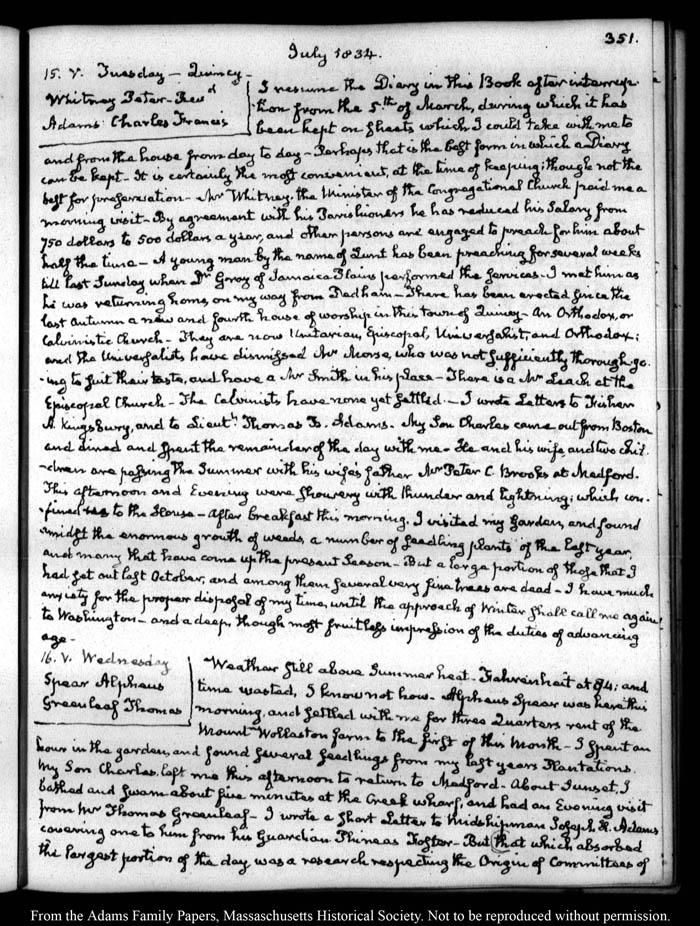 351.
July 1834.
15. V. Tuesday — Quincy —
Whitney Peter - Revd
Adams Charles Francis
I resume the Diary in this Book after interrup-
tion from the 5th of March, during which it has
been kept on sheets which I could take with me to
and from the house from day to day - Perhaps that is the best form in which a Diary
can be kept - It is certainly the most convenient, at the time of keeping; though not the
best for preservation - Mr Whitney, the Minister of the Congregational Church paid me a
morning visit - By agreement with his Parishioners he has reduced his Salary from
750 dollars to 500 dollars a year, and other persons are engaged to preach for him about
half the time - A young man by the name of Lunt has been preaching for several weeks
till last Sunday when Dr Gray of Jamaica Plains performed the services. I met him as
he was returning home, on my way from Dedham - There has been erected since the
last Autumn a new and fourth house of worship in this town of Quincy - An Orthodox, or
Calvinistic Church - They are now Unitarian, Episcopal, Universalist, and Orthodox;
and the Universalists have dismissed Mr Morse, who was not sufficiently thorough-go-
-ing to suit their taste, and have a Mr Smith in his place - There is a Mr Leach at the
Episcopal Church - The Calvinists have none yet settled. - I wrote Letters to Fisher
A. Kingsbury, and to Lieutt Thomas B. Adams. My Son Charles came out from Boston
and dined and spent the remainder of the day with me - He and his wife, and two chil-
-dren are passing the Summer with his wife's father Mr Peter C. Brooks at Medford.
This afternoon and Evening were showery with thunder and lightning; which con-
-fined to the House - After breakfast this morning, I visited my Garden, and found
amidst the enormous growth of weeds, a number of seedling plants of the last year,
and many that have come up the present Season - But a large portion of those that I
had set out last October, and among them several very fine trees are dead - I have much
anxiety for the proper disposal of my time, until the approach of Winter shall call me again
to Washington - and a deep, though most fruitless impression of the duties of advancing
age -
16. V. Wednesday
Spear Alpheus
Greenleaf Thomas
Weather still above Summer heat - Fahrenheit at 84; and
time wasted, I know not how - Alpheus Spear was here this
morning, and settled with me for three Quarters rent of the
Mount Wollaston farm to the first of this Month - I spent an
hour in the garden, and found several seedlings from my last years Plantations.
My Son Charles, left me this afternoon to return to Medford - About Sunset, I
bathed and swam about five minutes at the Creek wharf, and had an Evening visit
from Mr Thomas Greenleaf - I wrote a short Letter to Midshipman Joseph H. Adams
covering one to him from his Guardian Phineas Foster - But that which absorbed
the largest portion of the day was a research respecting the Origin of Committees of
From the Adams Family Papers, Massachusetts Historical Society. Not to be reproduced without permission.